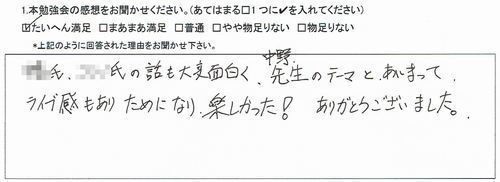 1.本勉強会の感想をお聞かせください。(あてはまる□1つに✔を入れてください)
☑たいへん満足 □まあまあ満足 □普通 □やや物足りない □物足りない
*上記のように回答された理由をお聞かせ下さい。
氏、氏の話も大変面白く、中野先生のテーマとあいまって、
ライブ感もありためになり、楽しかった! ありがとうございました。